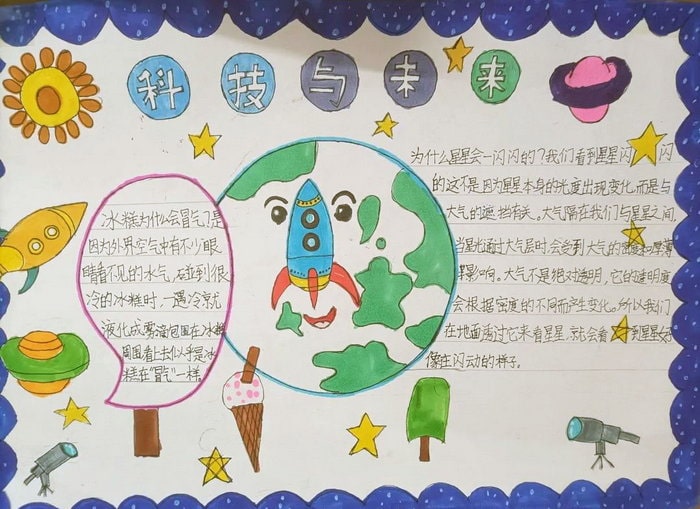 科技与未来
冰糕为什么会冒气?是
因为外界空气中有不少眼
睛看不见的水气,碰到很
冷的冰糕时,一遇冷就
液化成雾滴包围在冰糕
周围看上去似乎是冰
糕在“冒气”一样。
为什么星星会一闪闪的?我们看到星星闪闪
的这不是因为星星本身的光度出现变化,而是与
大气的遮挡有关。大气隔在我们与星星之间,
当星光通过大气层时会受到大气的密度和厚薄
影响。大气不是绝对透明,它的透明度
会根据密度的不同而产生变化。所以我们
在地面透过它来看星星,就会看到星星好
像在闪动的样子。